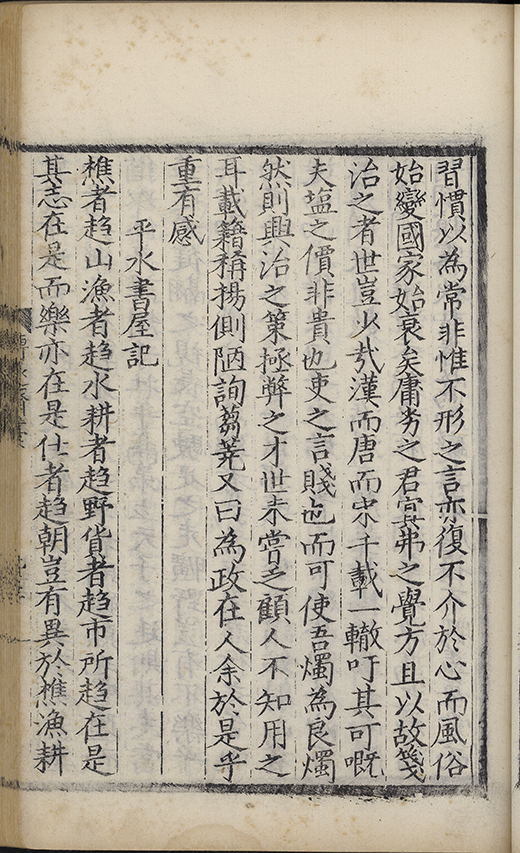 習慣以為常非惟不形之言亦復不介於心而風俗
始變國家始衰矣庸劣之君寘弗之覺方且以故箋
治之者世豈少哉漢而唐而宋千載一轍吁其可嘅
夫塩之價非貴也吏之言賤也而可使吾燭為良燭
然則興治之策極弊之才世未嘗乏顧人不知用之
耳載籍稱揚側陋詢蒭蕘又曰為政在人余於是乎
重有感
平水書屋記
樵者趋山漁者趋水耕者趋野貨者趋市所趋在是
其志在是而樂亦在是仕者趋朝豈有異於樵漁耕